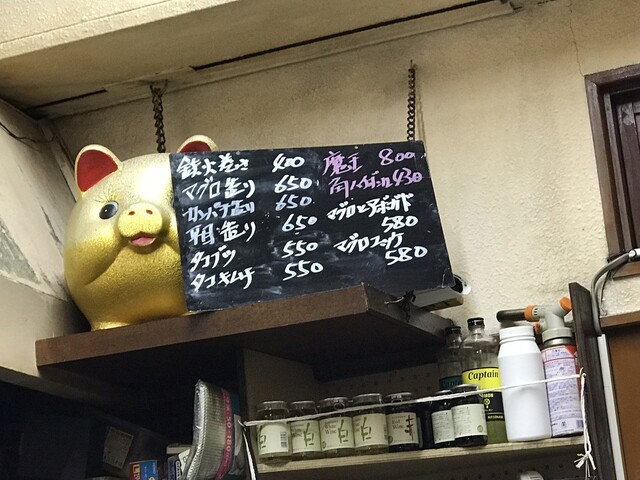 鉄火巻き 400
マグロ造り 650
カンパチ造り 650
平目造り 650
タコブツ 550
タコキムチ 550
魔王 800
角ハイボール 430
マグロとアボカド
580
マグロユッケ
580
Captain
白
白
白